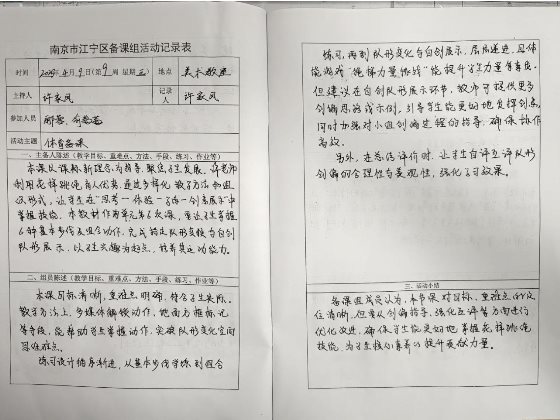 南京市江宁区备课组活动记录表
时间 2025年4月9日(第9周 星期三) 地点 美术教室
主持人 许家凤 记录人 许家凤
参加人员
活动主题 体育备课
一、主备人陈述（教学目标、重难点、方法、手段、练习、作业等）
本课以课标、新理念为指导，聚焦学生发展，许老师
利用花样跳绳育人优势，通过多样化教学方法和组
织形式，让学生在"思考一体验一了练一创走展示"中
掌握技能。本教材作为单元第6次课，重在学生掌握
6种基本步伐及组合动作，完成特定队形变换与自创
队形展示，以学生兴趣为起点，培养其运动能力。
二、组员陈述（教学目标、重难点、方法、手段、练习、作业等）
本课目标清晰，重难点明确，符合学生实际。
教学方法上，多媒体解锁动作，地面方框标记
等手段，能帮助学生掌握动作，突破队形变化空间
思维难点。
练习设计循序渐进，从基本步伐学练到组合
练习，再到队形变化与自创展示，层层递进，且体
能游戏"绳梯力量挑战"能提升学生力量等素质。
但建议在自创队形展示环节，教师可提供更多
创编思路或示例，引导学生能更好地发挥创意，
同时加强对小组创编过程的指导，确保协作
高效。
另外，在总结评价时，让学生自评互评队形
创编的合理性与美观性，强化学习效果。
三、活动小结
备课组成员认为，本节课对目标、重难点的定
位清晰，但需从创编指导、强化互评等方面进行
优化改进，确保学生能更好地掌握花样跳绳
技能，为学生核心素养的提升贡献力量。